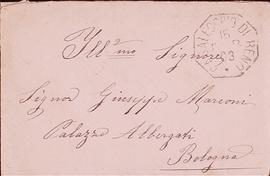 Ill.mo Signore
Signor Giuseppe Marconi
Palazzo Albergati
Bologna
CASALECCHIO DI RENO
15
83